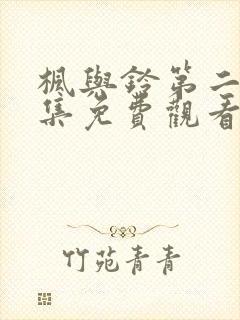 楓與鈴第二
集免費觀看
竹苑青青